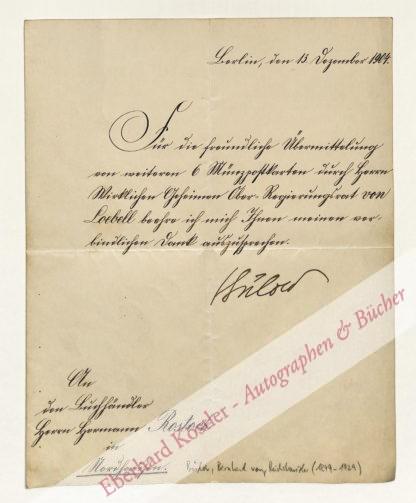 Berlin, den 13. Dezember 1904.
Für die freundliche Übermittelung
von weiteren 6 Münzpostkarten durch Herrn
Wirklichen Geheimen Ober-Regierungsrat von
Loebell beehre ich mich Ihnen meinen ver-
bindlichen Dank auszusprechen.
Bülow
An
den Buchhändler
Herrn Hermann
in
Nordhausen.
Bülow, Bernhard von, Reichskanzler (1849-1929)
Eberhard Köstler - Autographen & Bücher